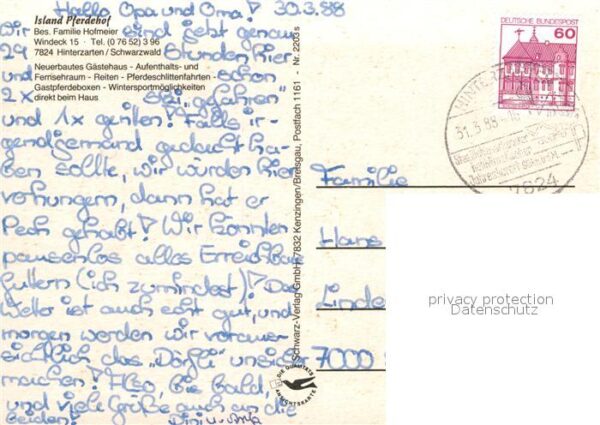 Hallo Opa und Oma! 30.3.88
Island Pferdehof
Bes. Familie Hofmeier
Windeck 15 · Tel. (0 76 52) 3 96
7824 Hinterzarten / Schwarzwald
Neuerbautes Gästehaus - Aufenthalts- und
Fernsehraum - Reiten - Pferdeschlittenfahrten -
Gastpferdeboxen - Wintersportmöglichkeiten
direkt beim Haus
Wir sind jetzt genau
29 Stunden hier
und schon
2x Ski „gefahren“
und 1x geritten! Falls ir-
gendjemand gedacht ha-
ben sollte, wir würden hier
verhungern, dann hat er
Pech gehabt! Wir könnten
pausenlos alles Erreichbare
futtern (ich zumindest)! Das
Wetter ist auch echt gut, und
morgen werden wir voraus-
sichtlich das „Dörfli“ unsicher
machen! Also, bis bald,
und viele Grüße auch an die
Beiden!
Schwarz-Verlag GmbH, 7832 Kenzingen/Breisgau, Postfach 1161 - Nr. 2203 s
DIE QUALITÄTS
ANSICHTSKARTE
DEUTSCHE BUNDESPOST
60
31.3.88
7824
Familie
Hans
Linde
7000
privacy protection
Datenschutz